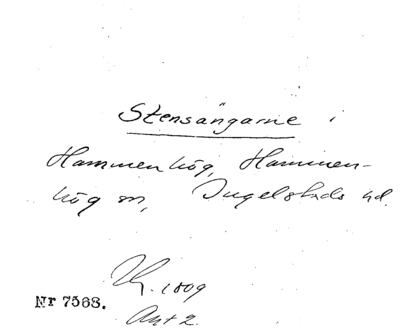 Stensängarne i
Hammenhög, Hammen-
hög sn, Ingelstads hd.
1809
Akt 2.
Nr 7568.